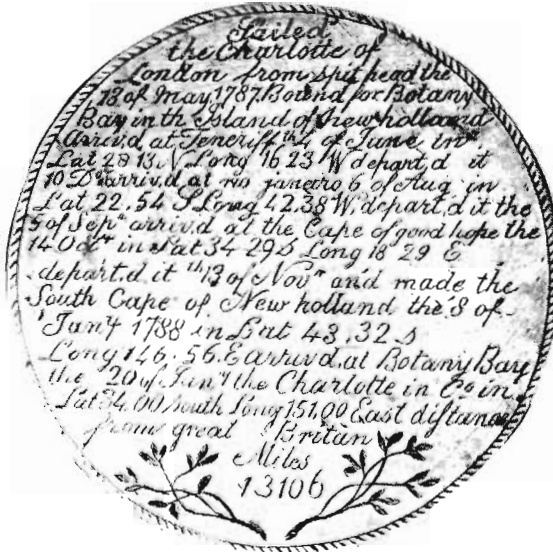 Sailed
the Charlotte of
London from spit head the
13 of May 1787 Bound for Botany
Bay in th Island of new holland
Arriv,d at Teneriff th 4 of June in
Lat 28 13 N Long 16 23 W depart,d it
10 Do arriv,d at rio janeiro 6 of Aug in
Lat 22.54 S Long 42.38 W, depart,d it the
5 of Sepr arriv,d at the Cape of good hope the
14 Octr in Lat 34 29 S Long 18 29 E
depart,d it th 13 of Novr and made the
South Cape of New holland the 8 of
Jany 1788 in Lat 43.32 S
Long 146.56 E arriv,d at Botany Bay
the 20 of Jany the Charlotte in Co in
Lat 34.00 South Long 151.00 East distance
from great Britan
Miles
13106